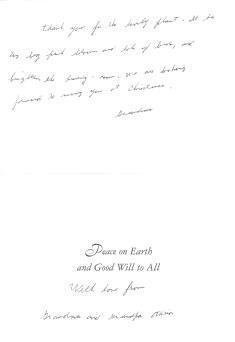 Thank you for the lovely plant. It is
big pink blooms and lots of buds, and
brightens the living-room. We are looking
forward to seeing you at Christmas.
Grandma
Peace on Earth
and Good Will to All
With love from
Grandma and Grandpa